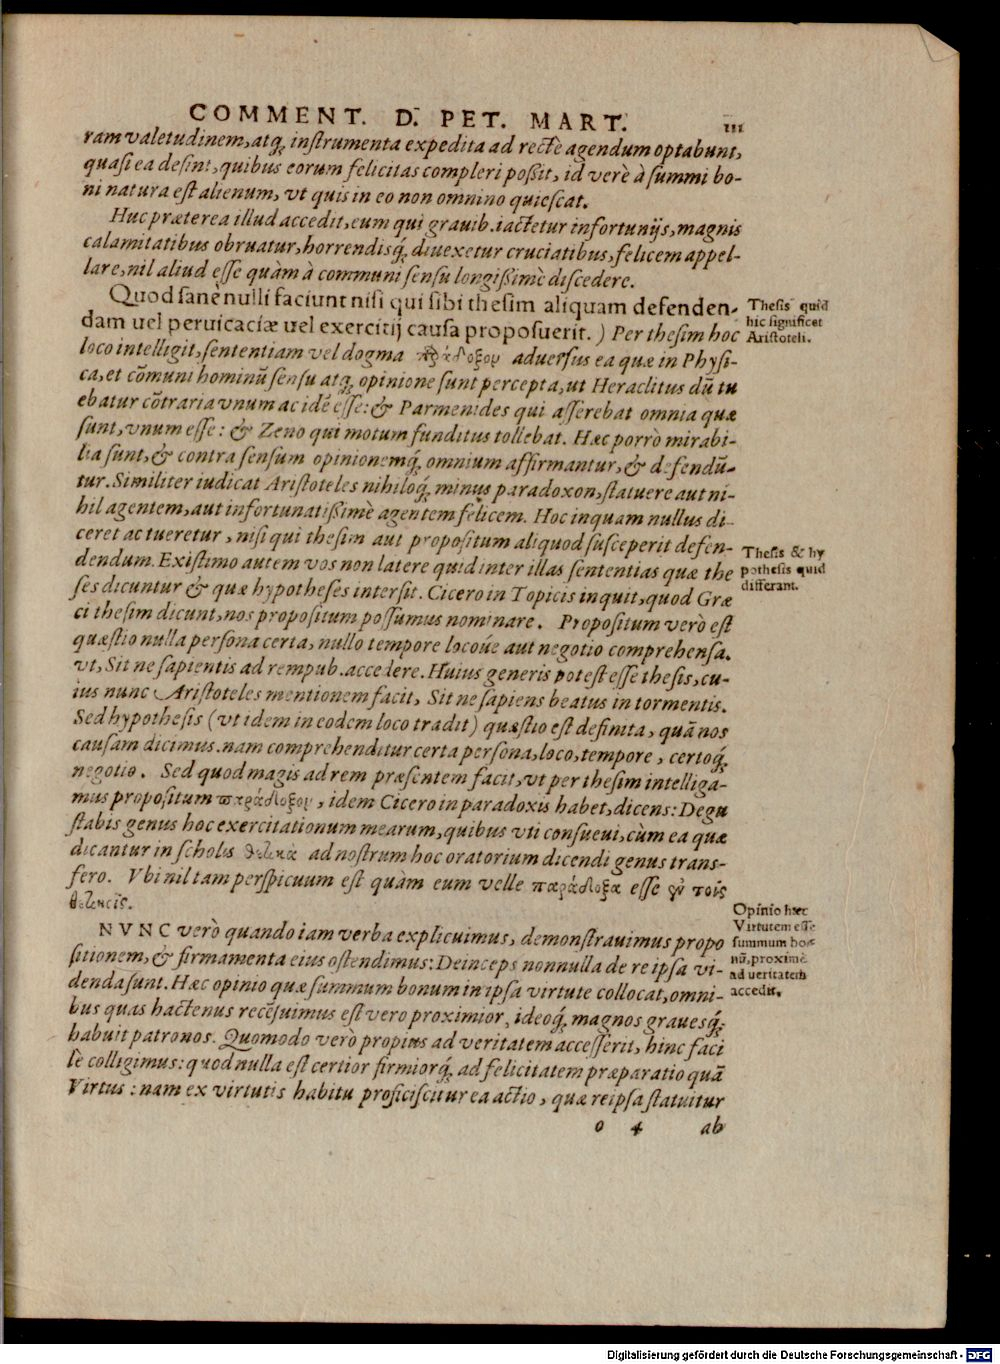 COMMENT. D. PET. MART. 111
ram valetudinem, atq́ instrumenta expedita ad rectè agendum optabunt,
quasi ea desint, quibus eorum felicitas compleri possit, id verè à summi bo-
ni natura est alienum, vt quis in eo non omnino quiescat.
Huc præterea illud accedit, eum qui grauib. iactetur infortunijs, magnis
calamitatibus obruatur, horrendisq́ diuexetur cruciatibus, felicem appel-
lare, nil aliud esse quàm à communi sensu longißimè discedere.
Quod sanè nulli faciunt nisi qui sibi thesim aliquam defenden-
dam uel peruicaciæ uel exercitij causa proposuerit. ) Per thesim hoc
loco intelligit, sententiam vel dogma παράδοξον aduersus ea quæ in Physi-
ca, et cõmuni hominũ sensu atq́ opinione sunt percepta, ut Heraclitus dũ tu
ebatur cõtraria vnum ac idẽ esse: & Parmenides qui asserebat omnia quæ
sunt, vnum esse: & Zeno qui motum funditus tollebat. Hæc porrò mirabi-
lia sunt, & contra sensum opinionemq́ omnium affirmantur, & defendũ-
tur. Similiter iudicat Aristoteles nihiloq́ minus paradoxon, statuere aut ni-
hil agentem, aut infortunatißimè agentem felicem. Hoc inquam nullus di-
ceret ac tueretur, nisi qui thesim aut propositum aliquod susceperit defen-
dendum. Existimo autem vos non latere quid inter illas sententias quæ the
ses dicuntur & quæ hypotheses intersit. Cicero in Topicis inquit, quod Græ
ci thesim dicunt, nos propositum possumus nominare. Propositum verò est
quæstio nulla persona certa, nullo tempore locoúe aut negotio comprehensa.
vt, Sit ne sapientis ad rempub. accedere. Huius generis potest esse thesis, cu-
ius nunc Aristoteles mentionem facit, Sit ne sapiens beatus in tormentis.
Sed hypothesis (vt idem in eodem loco tradit) quæstio est definita, quã nos
causam dicimus. nam comprehenditur certa persona, loco, tempore, certoq́
negotio. Sed quod magis ad rem præsentem facit, vt per thesim intelliga-
mus propositum παράδοξον, idem Cicero in paradoxis habet, dicens: Degu
stabis genus hoc exercitationum mearum, quibus vti consueui, cùm ea quæ
dicantur in scholis θετικὰ ad nostrum hoc oratorium dicendi genus trans-
fero. Vbi nil tam perspicuum est quàm eum velle παράδοξα esse ἐν τοῖς
θετικοῖς.
NVNC verò quando iam verba explicuimus, demonstrauimus propo
sitionem, & firmamenta eius ostendimus: Deinceps nonnulla de re ipsa vi-
denda sunt. Hæc opinio quæ summum bonum in ipsa virtute collocat, omni-
bus quas hactenus recẽsuimus est vero proximior, ideoq́ magnos grauesq́;
habuit patronos. Quomodo verò propius ad veritatem accesserit, hinc faci
lè colligimus: quod nulla est certior firmiorq́ ad felicitatem præparatio quã
Virtus: nam ex virtutis habitu proficiscitur ea actio, quæ reipsa statuitur
o 4 ab
Thesis quid
hic significet
Aristoteli.
Thesis & hy
pothesis quid
differant.
Opinio hæc
Virtutem esse
summum bo-
nũ, proximè
ad veritatem
accedit.
Digitalisierung gefördert durch die Deutsche Forschungsgemeinschaft - DFG